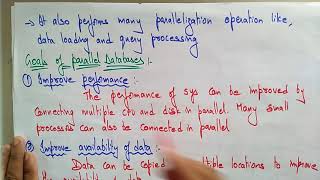 → It also performs many parallelization operation like,
data loading and query processing
Goals of parallel Databases :-
① Improve performance :-
The performance of sys can be improved by
connecting multiple CPU and disk in parallel. Many small
processors can also be connected in parallel
② Improve availability of data :-
Data can be copied multiple locations to improve